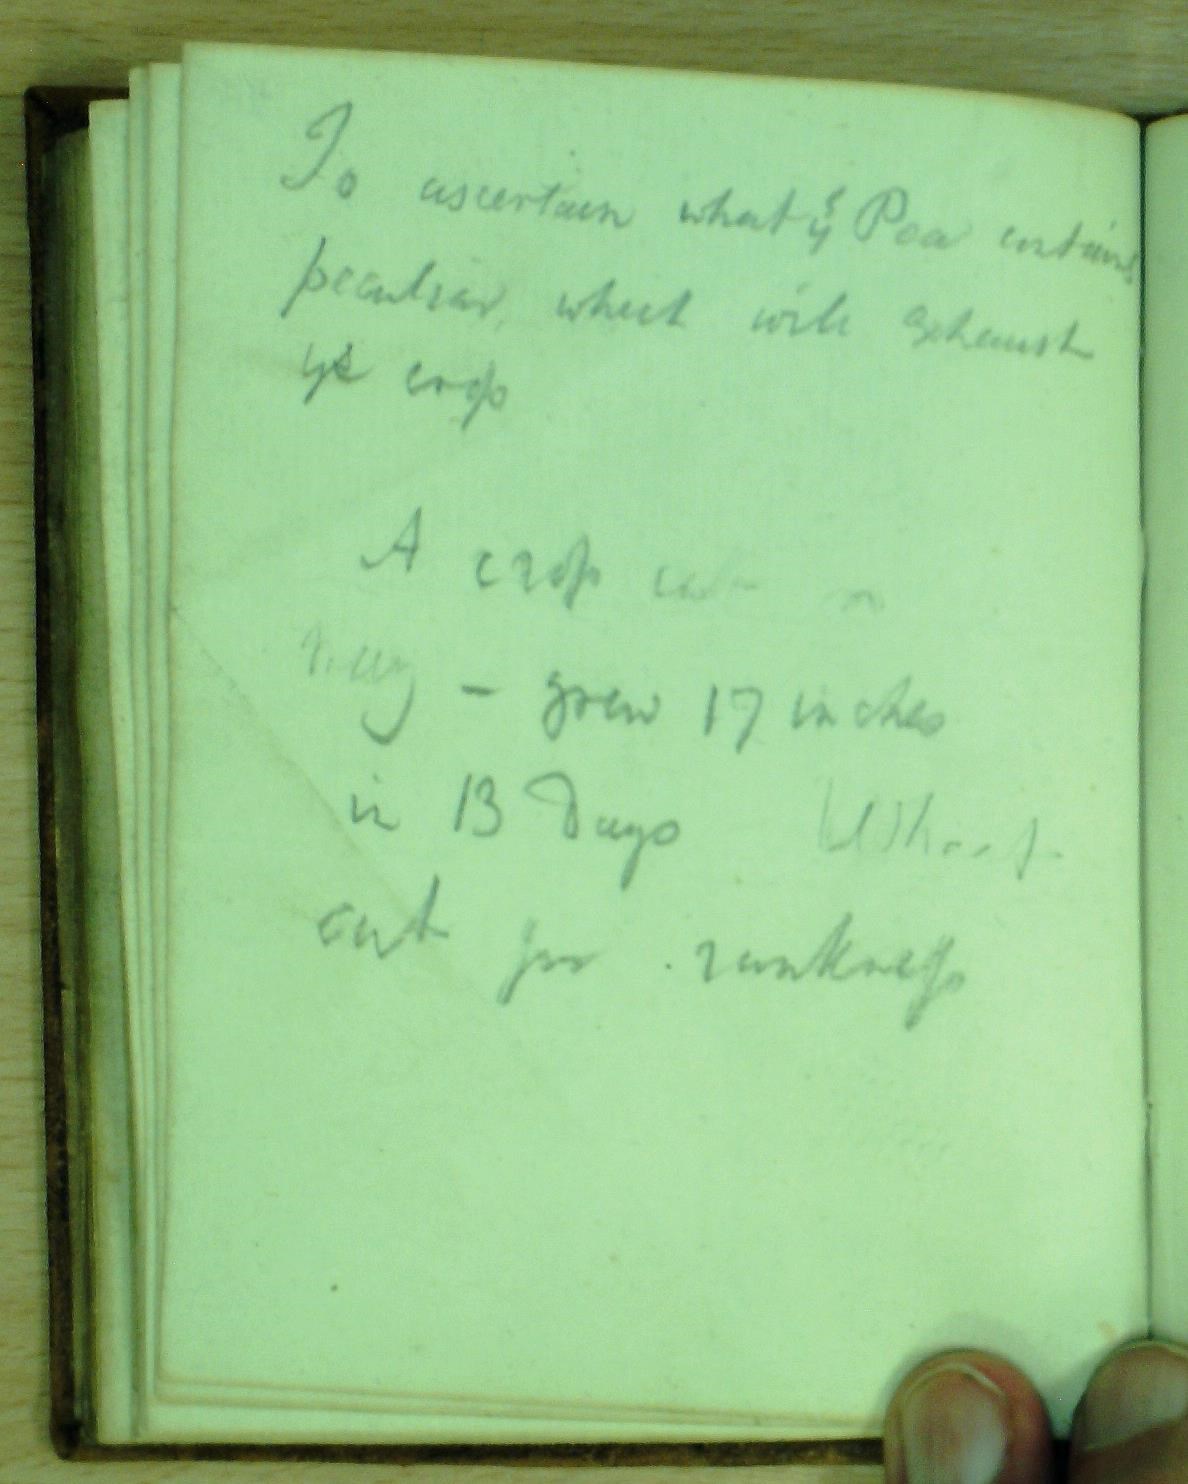 To ascertain what ye Pea contains
peculiar, which will exhaust
ye crop
A crop cut in
May – grew 17 inches
in 13 Days Wheat
cut for rankness